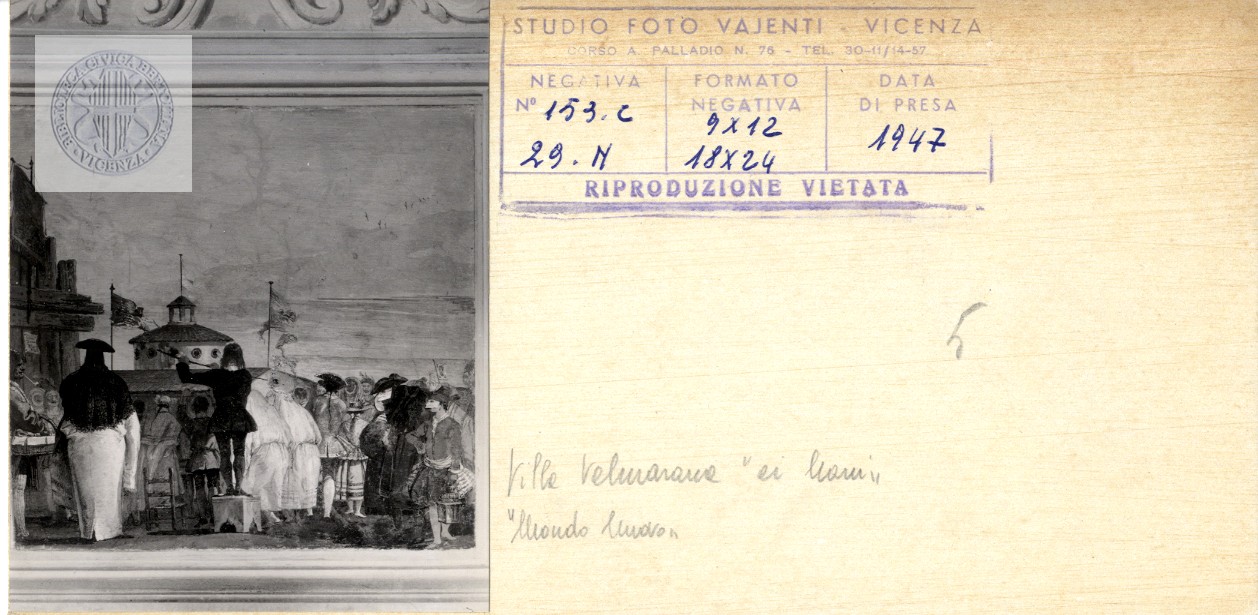 BIBLIOTECA CIVICA BERTOLIANA · VICENZA ·
STUDIO FOTO VAJENTI - VICENZA
CORSO A. PALLADIO N. 76 - TEL. 30-11/14-57
NEGATIVA
Nº 153. C
29. N
FORMATO
NEGATIVA
9X12
18X24
DATA
DI PRESA
1947
RIPRODUZIONE VIETATA
5
Villa Valmarana "ai Nani"
"Mondo Nuovo"